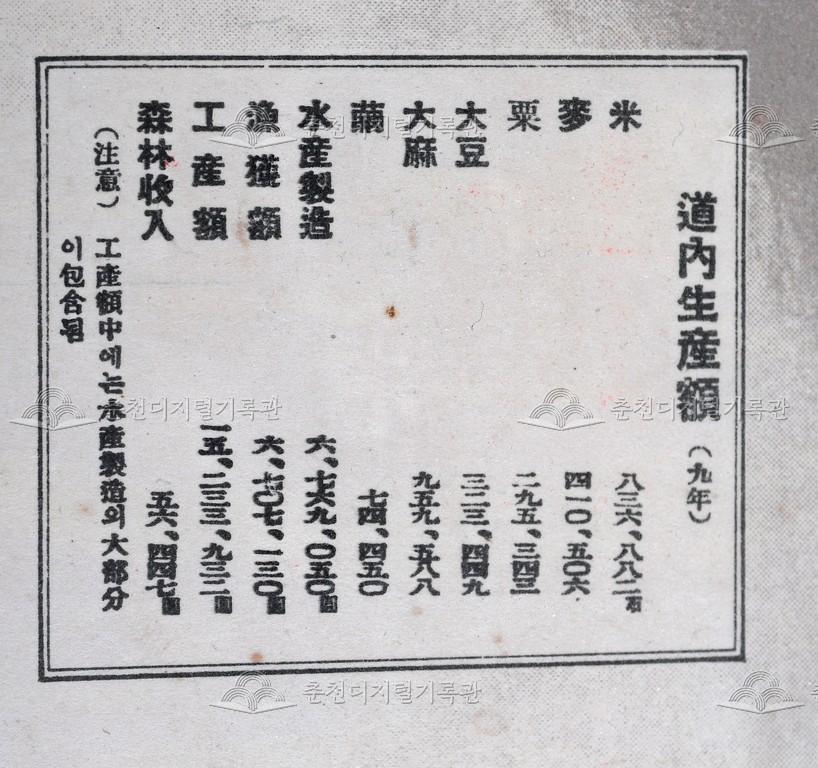 道內生産額 (九年)
米 八三六、八八二石
麥 四一〇、五〇六
粟 二九五、三四三
大豆 三二三、四四九
大麻 九五九、五八八
繭 七四、四五〇
水産製造 六、七六九、〇五〇圓
漁獲額 六、七〇七、一三〇圓
工産額 一五、二三三、九三二圓
森林收入 五六、四四七圓
(注意) 工産額中에는水産製造의大部分
이包含됨
춘천디지털기록관
춘천디지털기록관
춘천디지털기록관
춘천디지털기록관